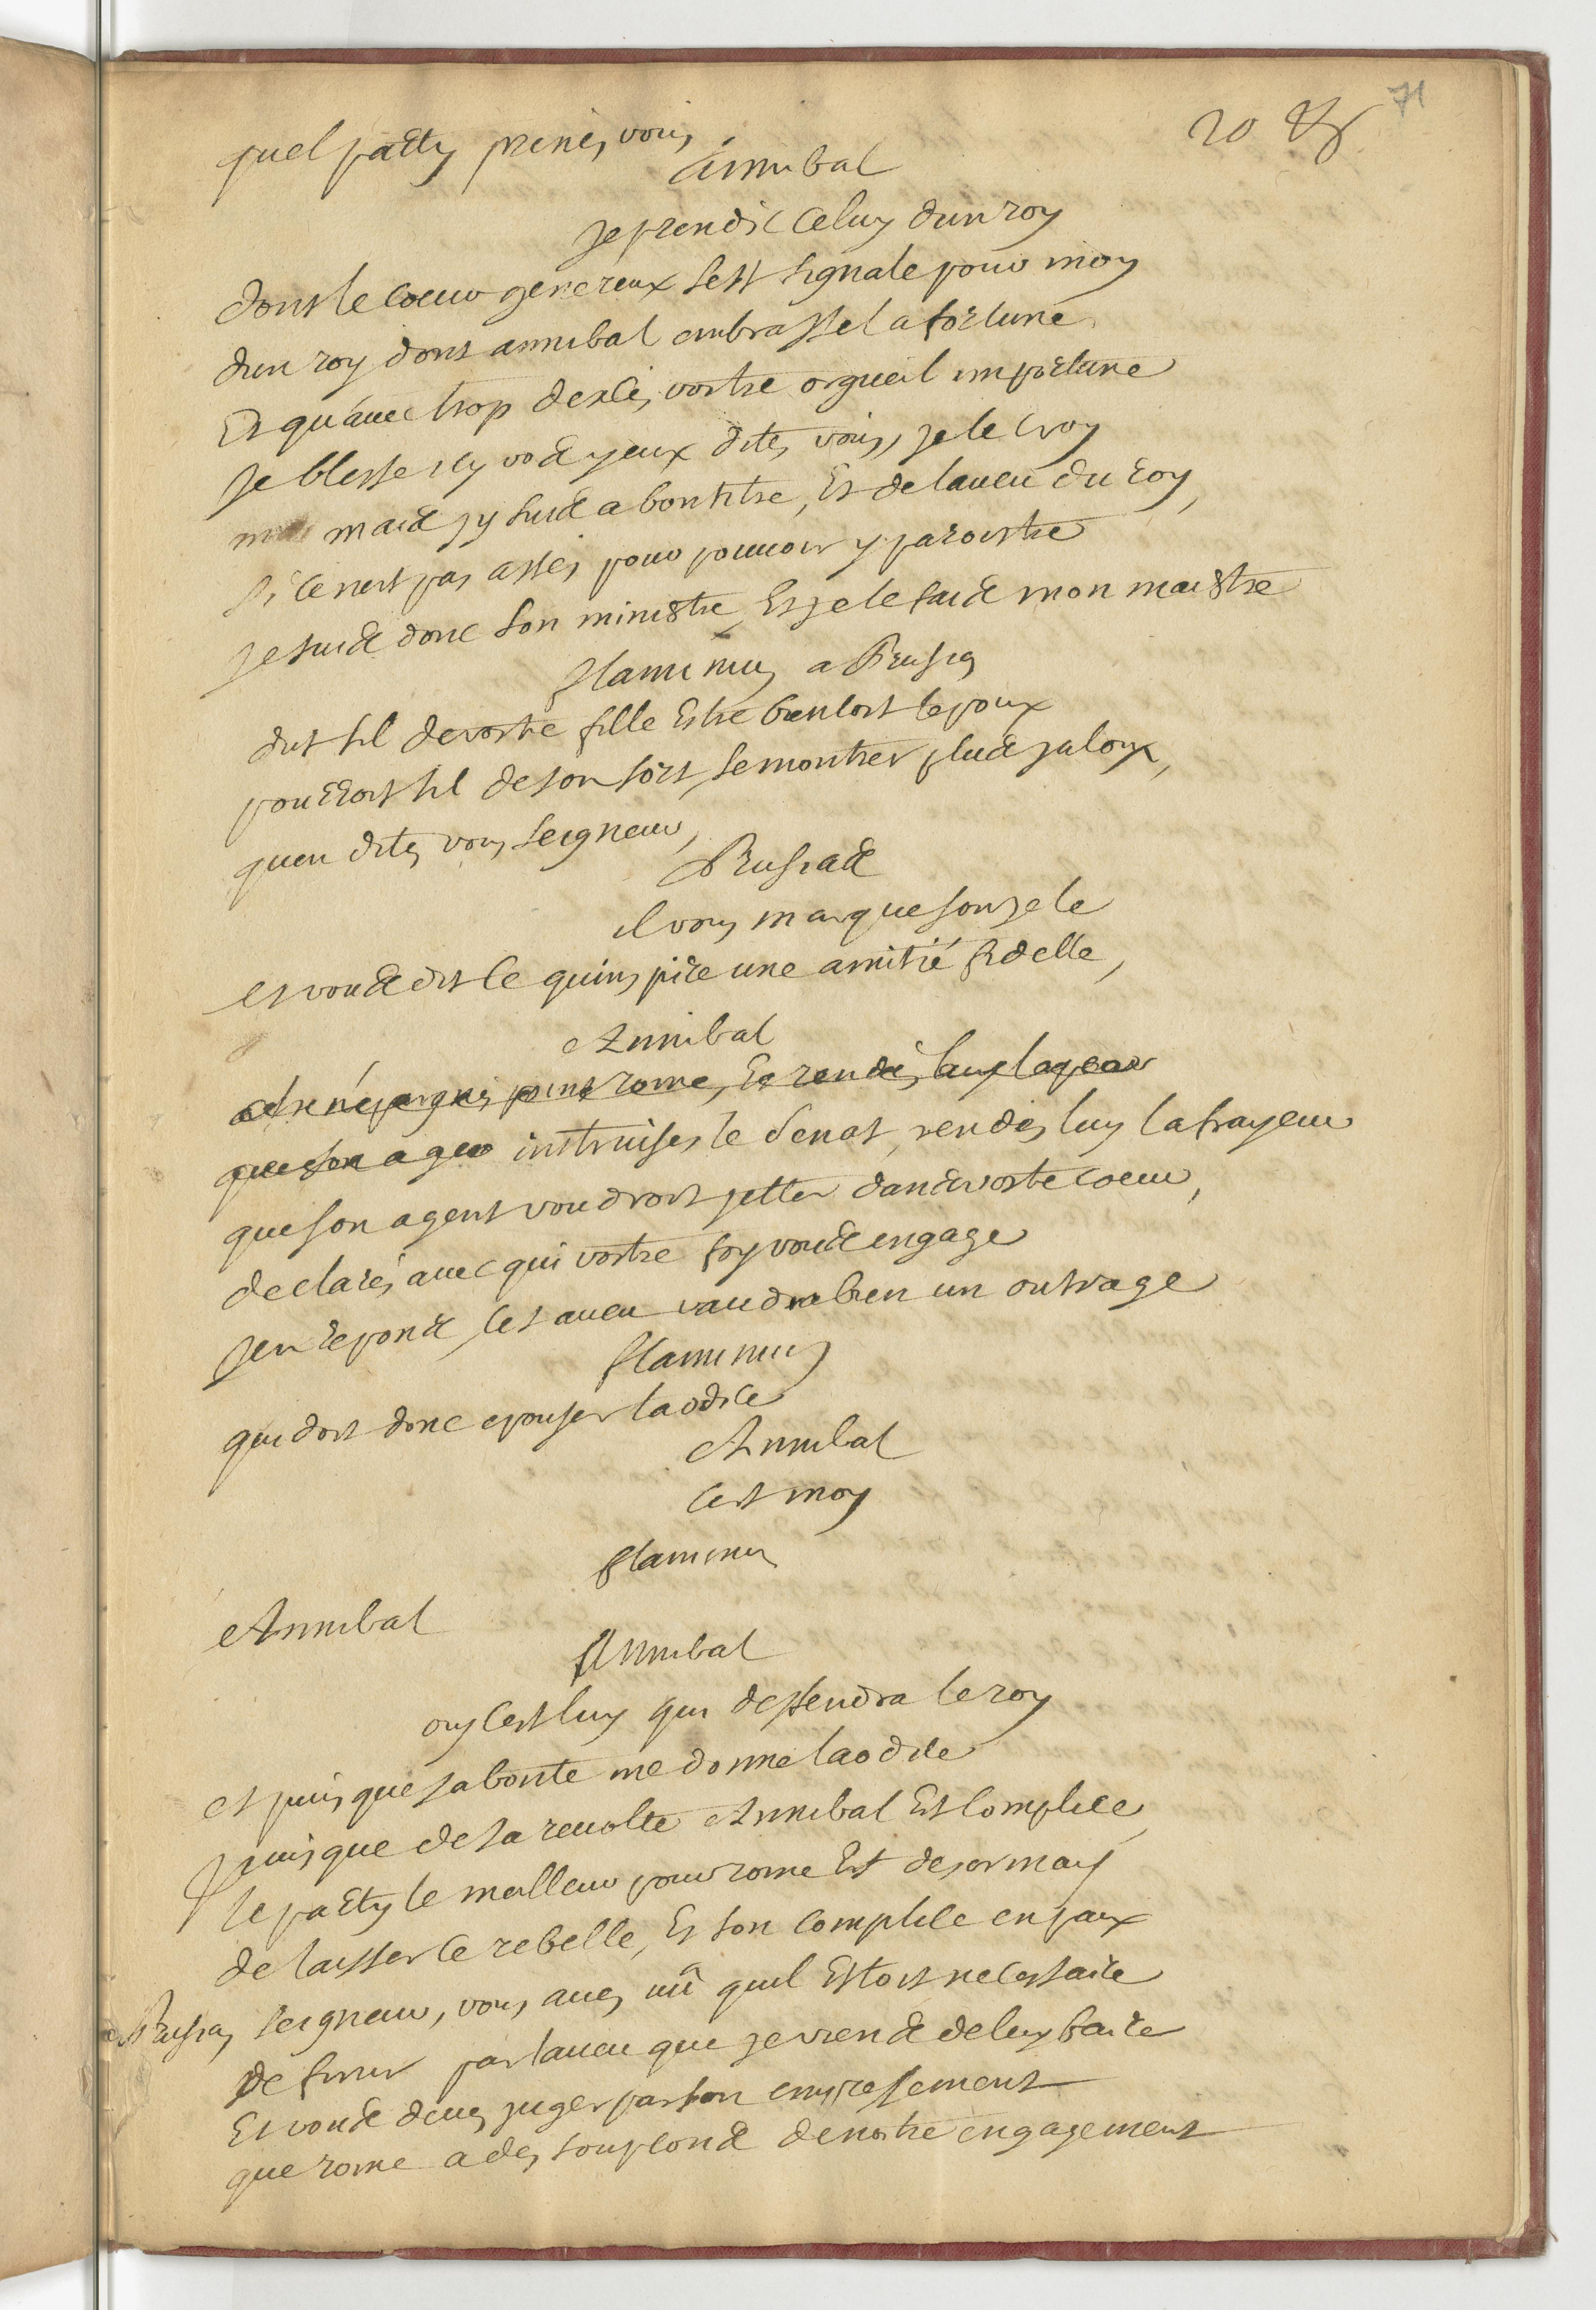 71
20
quel party prenés vous
annibal
je prendis celuy dun roy
dont le coeur genereux sest signale pour moy
dun roy dont annibal embrasse la fortune
Et quavec trop dexcés vostre orgueil importune
je blesse icy vos yeux dites vous, je le croy
mais jy suis a bon titre, Et de laveu du roy,
si ce nest pas assés pour pouvoir y paroistre
je suis donc son ministre, Et je le fais mon maistre
flaminius a Prusias
dut il de vostre fille Estre bientost lepoux
pourroit il de son sort, se montrer plus jaloux,
quen dites vous, seigneur,
Prusias
il vous marque son zele
et vous dit ce quinspire une amitié fidelle,
Annibal
instruises le senat, rendés luy la frayeur
que son agent voudroit jetter dans vostre coeur,
declarés avec qui vostre foy vous engage
jen repons, cet aveu vaudra bien un outrage
flaminius
qui doit donc epouser laodice
Annibal
cest moy
flaminius
Annibal
Annibal
ouy cest luy qui deffendra le roy
et puisque sa bonté me donne laodice
puisque de sa revolte Annibal Est complice
le party le meilleur pour rome Est desormais
de laisser ce rebelle, Et son complice en paix
a Prusias seigneur, vous aves vû quil Estoit necessaire
de finir par laveu que je viens de luy faire
Et vous deves juger par son empressement
que rome a des soupcons de nostre engagement